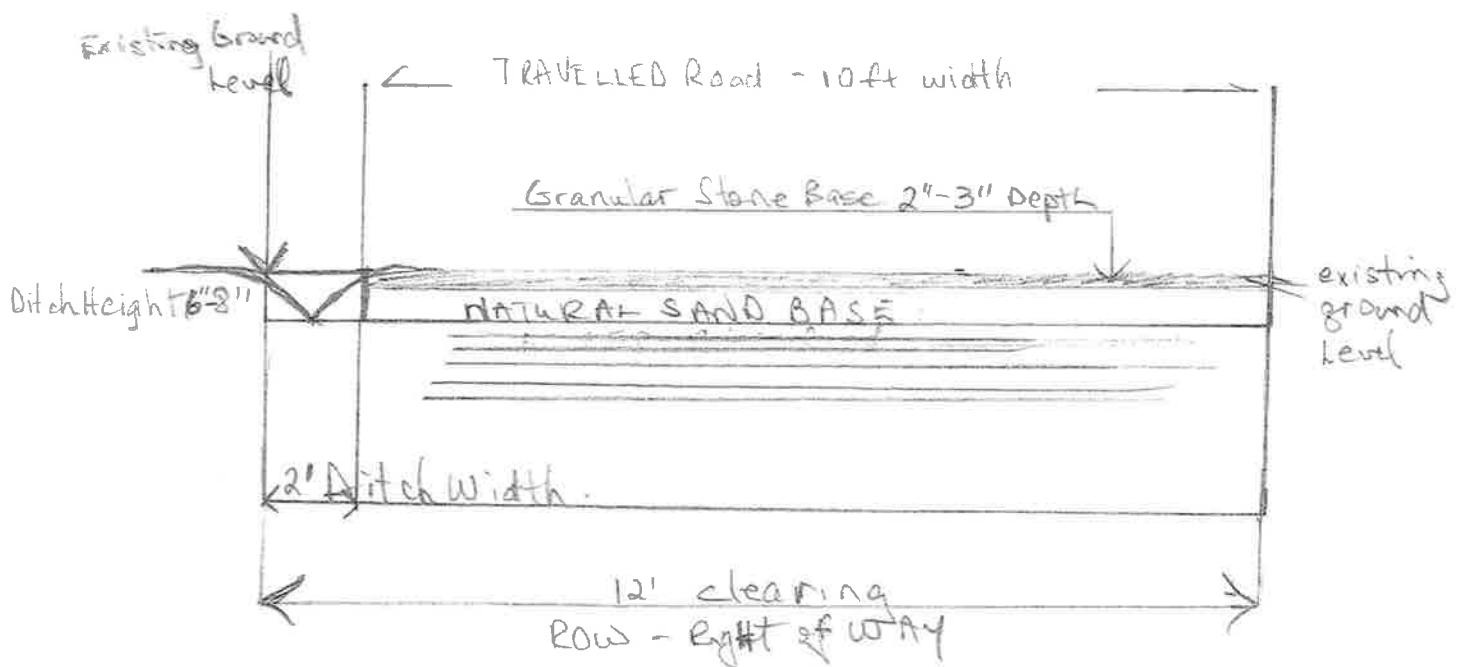 Existing Ground
Level
TRAVELLED Road - 10ft width
Granular Stone Base 2"-3" Depth
Ditch Height 6"-8"
NATURAL SAND BASE
existing
ground
Level
2' Ditch Width.
12' clearing
ROW - Right of WAY